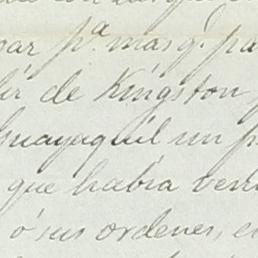 par pª. masq. pa
lir de Kingston
Guayaquil un p
que habia veni
ó sus ordenes, e